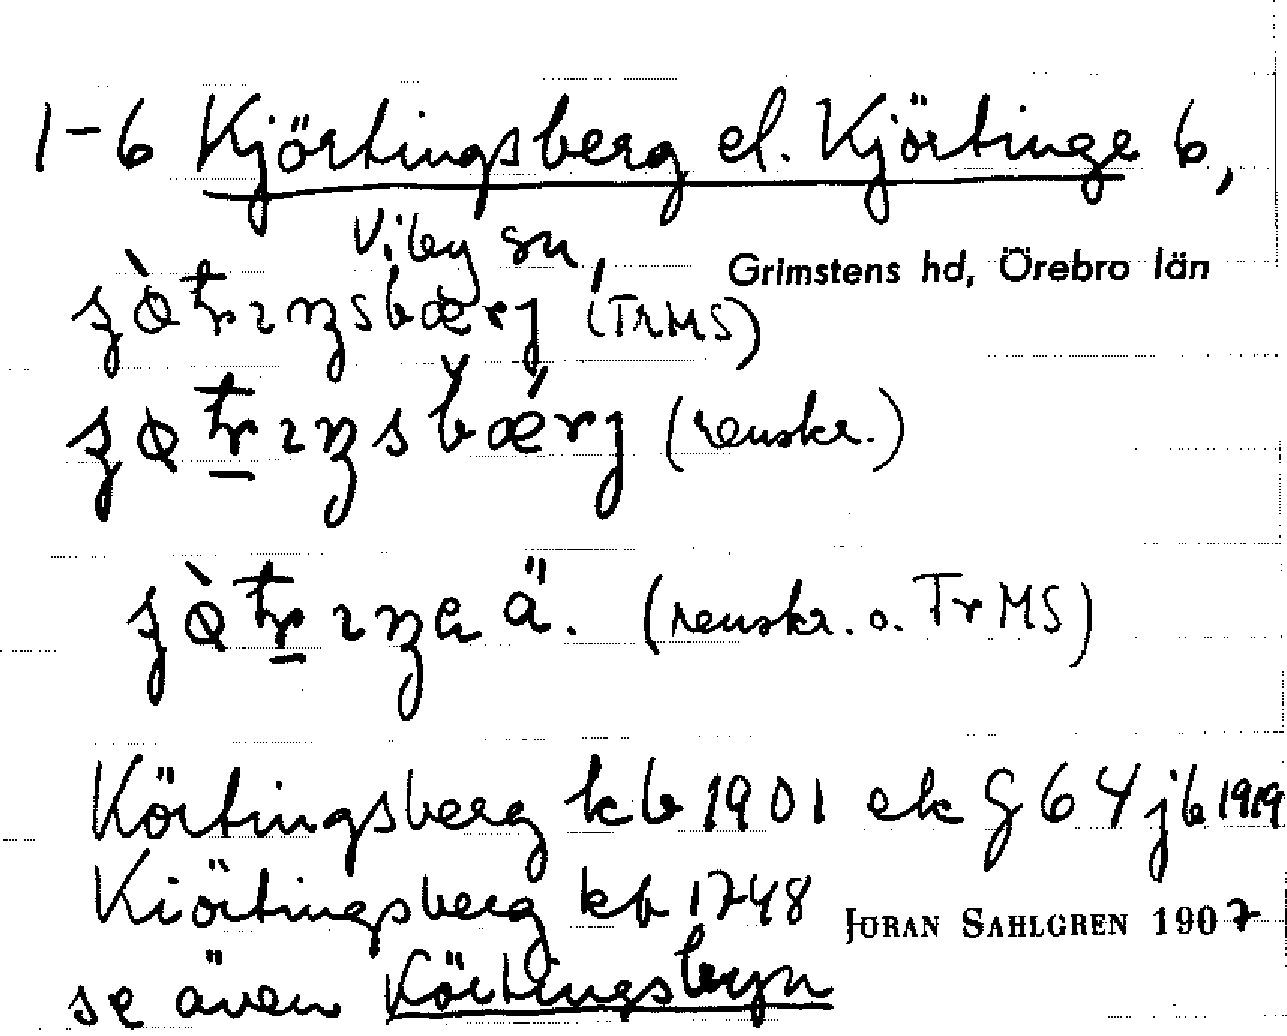 1-6 Kjörtingsberg el. Kjörtinge b,
Viby sn, Grimstens hd, Örebro län
(TrMS)
(renskr.)
ä. (renskr. o. TrMS)
Körtingsberg kb 1901 ek G 64 jb 1919
Kiörtingsberg kb 1748
JÖRAN SAHLGREN 1907
se även Körtingsbyn